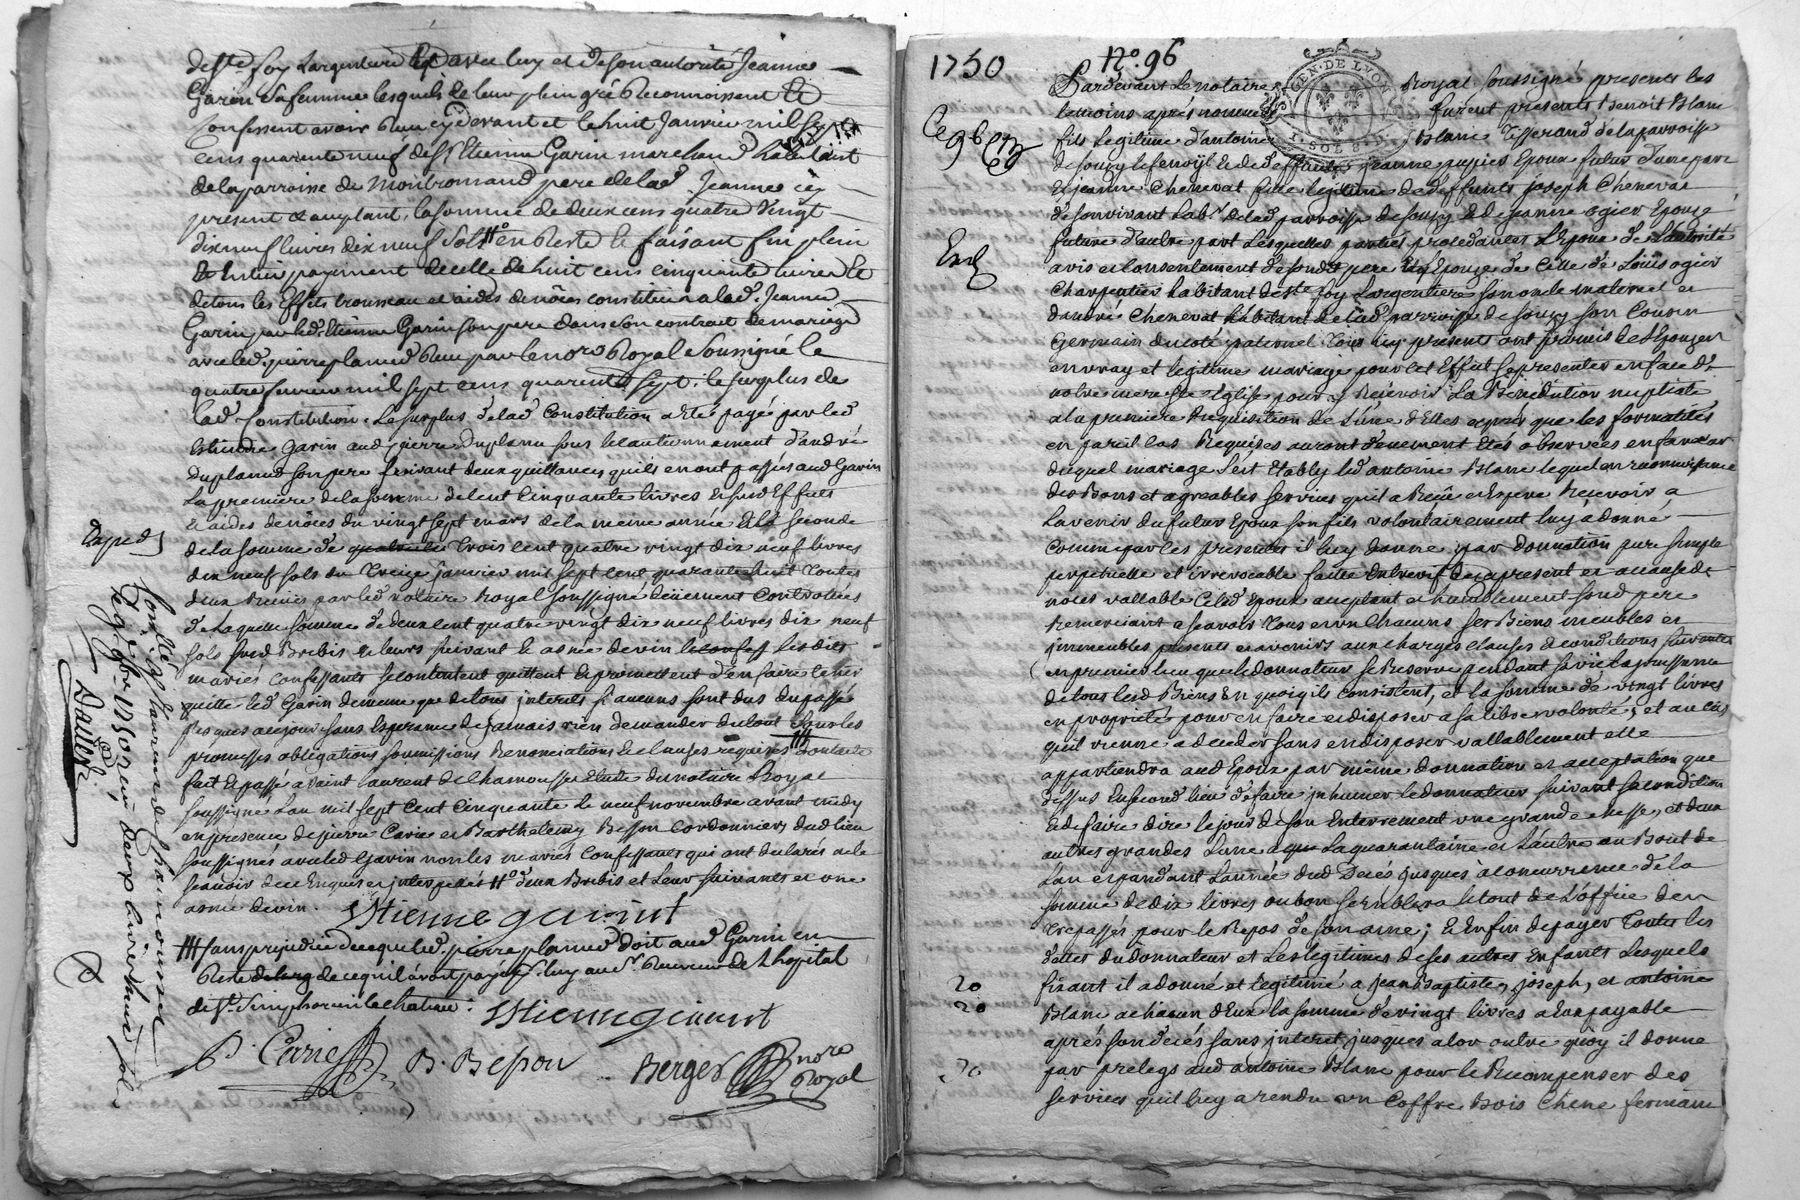 de Ste foy Largentiere Et avec luy et de son autorité Jeanne
Garin sa femme lesquels de leur plein gré Reconnoissent Et
Confessent avoir Reçu cy devant et le huit Janvier mil sept
cens quarente neuf de sr Etienne Garin marchand habitant
de la parroisse de Montromand pere de lad. Jeanne icy
present et acceptant, la somme de deux cens quatre vingt
dix neuf livres dix neuf sols # en Reste le faisant fin plein
Et Entier payement de celle de huit cens cinquante livres Et
de tous les Effets trousseau et aides de nôces constitués a lad. Jeanne
Garin par led. Etienne Garin son pere dans son contrat de mariage
avec led. pierre planud Reçu par le nore Royal Soussigné le
quatre fevrier mil sept cens quarente sept; le surplus de
lad Constitution. Le surplus de lad Constitution a été payé par led
Etienne Garin aud pierre Duplanu sous le cautionnement d'andré
Duplanud son pere suivant deux quittances qu'ils en ont passés aud Garin
La premiere de la somme de Cent Cinquante livres et sesd Effets
et aides de nôces du vingt sept mars de la meme année Et la seconde
de la somme de trois cent quatre vingt dix neuf livres
dix neuf sols du Treize janvier mil sept cent quarante huit toutes
deux Reçues par led notaire Royal soussigné deüement Controllées
de laquelle somme de deux cent quatre vingt dix neuf livres dix neuf
sols susd Brebis et leurs suivant et asnée de vin lesdits
mariés confessants se contentent quittent et promettent d'en faire tenir
quitte led Garin de meme que de tous interets si aucuns sont dus du passé
jusques aujour sans Esperance de jamais rien demander du tout sous les
promesses obligations soumissions Renonciations et clauses requises ## Dont acte
fait et passé a saint Laurent de Chamousset Etude du notaire Royal
soussigné Lan mil sept cent cinquante le neuf novembre avant midy
en presence de pierre Carie et Barthelemy Besson Cordonniers dud lieu
soussignés avec led Garin non les mariés Confessants qui ont declarés ne le
scavoir de ce Enquis et interpellés # deux Brebis et leur suivants et une
asnée de vin. Ettienne garint
## sans prejudice de ce que led. pierre planud doit aud Garin en
Reste de ce qu'il avoit payé p. luy au sr Receveur de Lhopital
de St. Simphorien le chateau. Ettienne garint
P. Carie B. Besson Berger nore
Royal
Exped
Conllé a St Laurent de Chamousset
le 9e 9bre 1750 reçu deux livre huit sol
Dauzé
1750
No. 96
GEN. DE LYON
Ce 9b
Exp
Pardevant Le notaire Royal soussigné presents les
temoins aprés nommés furent presents Benoit Blanc
fils Legitime d'antoine Blanc Tisserand de la parroisse
de souzy Lefenoyl Et de deffunte jeanne pupier Epoux futur d'une part
Et jeanne Chenevat fille legitime de deffunts joseph Chenevat
de son vivant Labr de lad parroisse de souzy Et de jeanne ogier Epouze
future d'autre part Lesquelles parties procedantes L'Epoux de L'autorité
avis et consentement de sond pere Et l'Epouze de Celle de Loüis ogier
Charpentier habitant de Ste foy Largentiere son oncle maternel et
d'andré Chenevat habitant de lad parroisse de souzy son Cousin
Germain du coté paternel Tous icy presents ont promis de s'Epouzer
en vray et legitime mariage pour cet Effet se presenter en face de
notre mere Ste Eglise pour y Recevoir La Benediction nuptiale
a la premiere Requisition de L'une d'Elles aprés que les formalités
en pareil cas Requises auront duement Etés observées en faveur
duquel mariage s'est Etably led antoine Blanc lequel en reconnoissance
des Bons et agreables services qu'il a Reçû et Espere Recevoir a
L'avenir du futur Epoux son fils volontairement luy a donné
Comme par les presentes il luy donne par donnation pure simple
perpetuelle et irrevocable faitte Entre vif des a present et a cause de
noces vallable Celd Epoux acceptant et humblement sond pere
Remerciant a scavoir Tous et un Chacuns ses Biens meubles et
immeubles presents et avenirs aux charges clauses et conditions suivantes
en premier lieu que le donnateur se Reserve pendant sa vie la jouissance
de tous lesd Biens En quoiq'ils consistent, et la somme de vingt livres
en proprieté pour en faire et disposer a sa libre volonté; et au cas
quil vienne a deceder sans en disposer vallablement elle
appartiendra aud Epoux par même donnation et acceptation que
dessus En second lieu de faire inhumer le donnateur suivant sa condition
Et de faire dire le jour de son Enterrement une grande Messe, et deux
autres grandes L'une a La quarantaine et L'autre au Bout de
L'an et pendant L'année dud Decés jusques a concurrence de la
somme de dix livres ou bon semblera le tout de L'office des
Trepassés pour le Repos de son ame; Et Enfin de payer Toutes les
dettes du donnateur et Les legitimes de ses autres Enfants Lesquels
fixant il a donné et legitimé a jean Baptiste, joseph, et antoine
Blanc a chacun d'Eux la somme de vingt livres a Eux payable
aprés son decés sans interet jusques alor outre quoy il donne
par prelegs aud antoine Blanc pour le Recompenser des
services qu'il luy a rendu un Coffre Bois Chene fermant
20
20
20